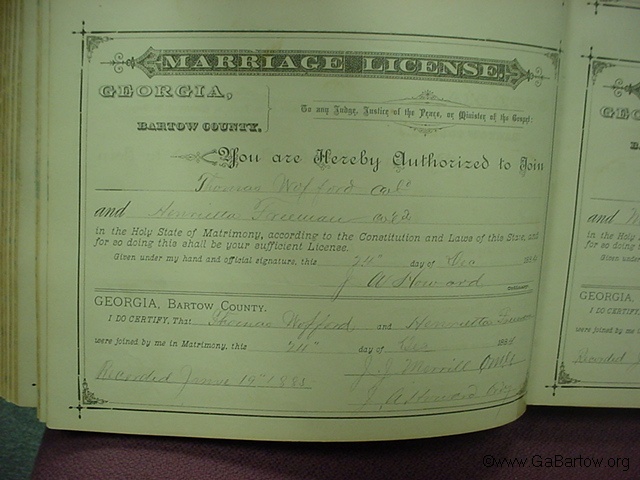 MARRIAGE LICENSE.
GEORGIA,
BARTOW COUNTY.
To any Judge, Justice of the Peace, or Minister of the Gospel:
You are Hereby Authorized to Join
Thomas Wofford Cold
and Henrietta Freeman Cold
in the Holy State of Matrimony, according to the Constitution and Laws of this State, and
for so doing this shall be your sufficient License.
Given under my hand and official signature, this 24" day of Dec 1884
J A Howard
GEORGIA, BARTOW COUNTY.
I DO CERTIFY, That Thomas Wofford and Henrietta Freeman
were joined by me in Matrimony, this "24" day of Dec 1884
J. J. Merrill
Recorded Jany 19" 1885 J. A Howard Ordy
GEO
B
and
in the Holy
for so doing
Given
GEORGIA
I DO
were joined by me in
Recorded
©www.GaBartow.org